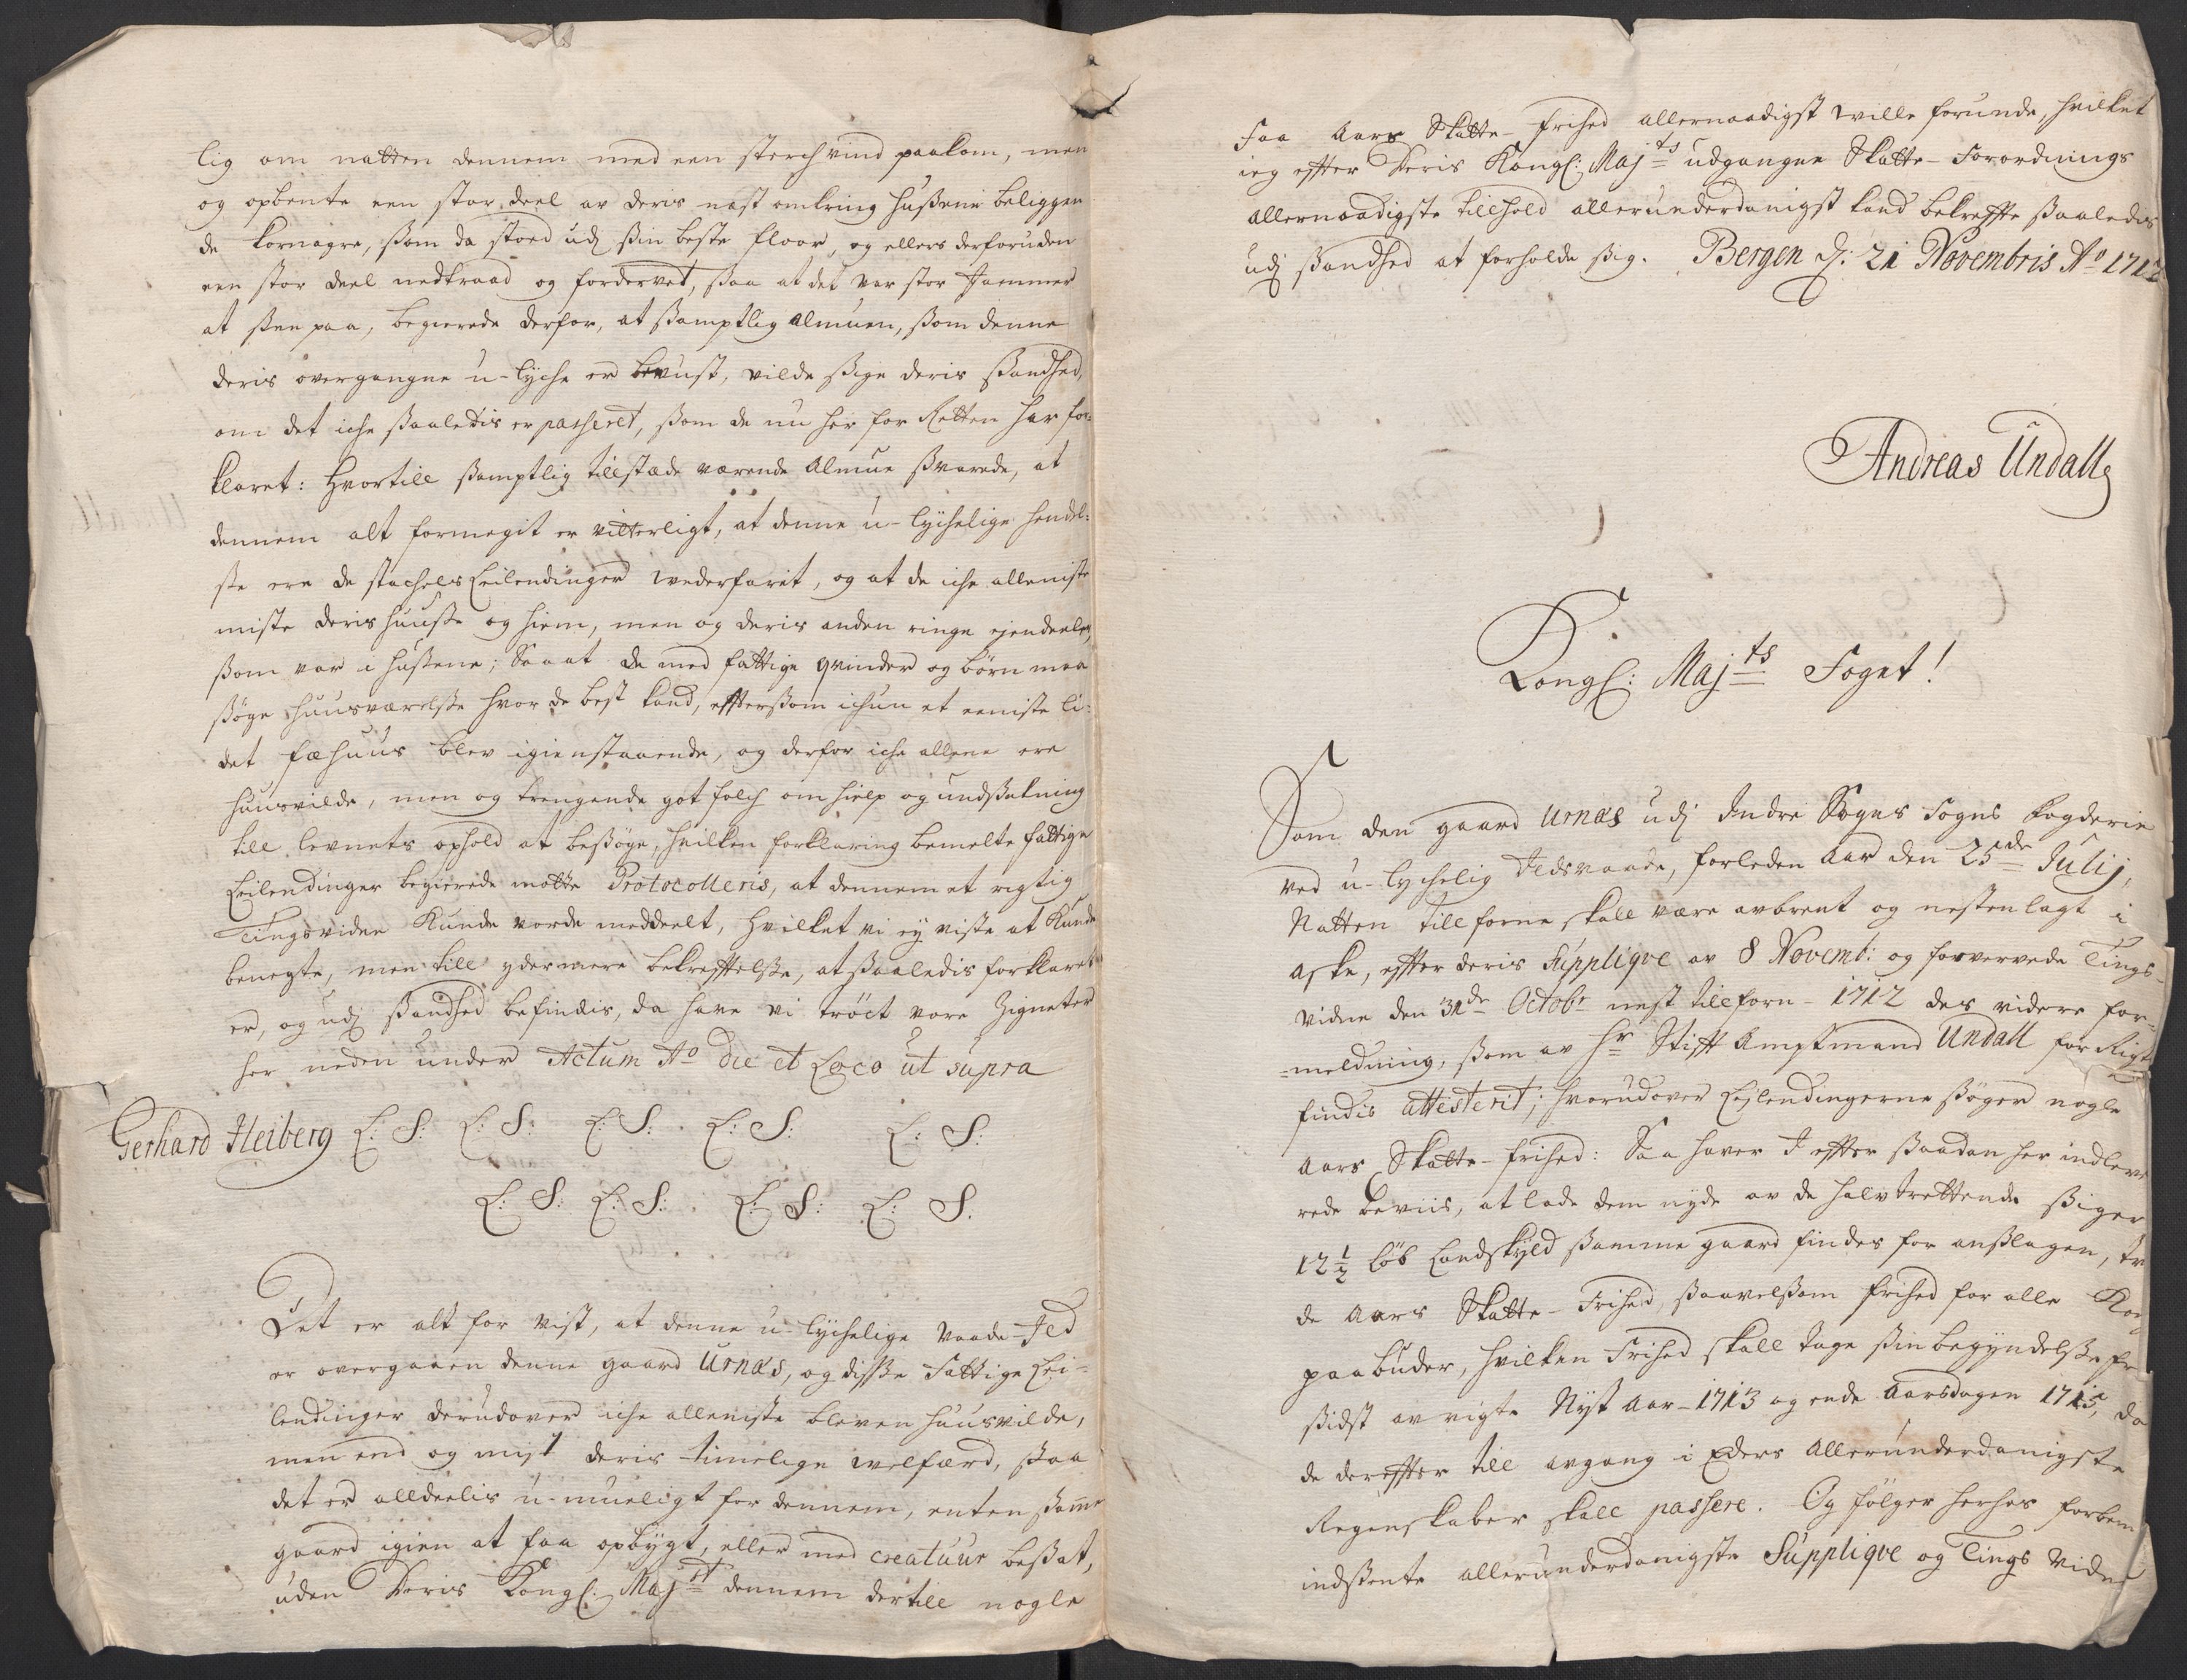 lig om natten dennem med een sterch vind paakom, men
og opbente een stor deel av deris nest omkring hußene beliggen
de kornagre, ßom da stoed udj ßin beste floor, og ellers derforuden
een stor deel nedtraad og fordervet, ßaa at det var stor Jammer
at ßee paa, begierede derfor, at ßamptlig Almuen, ßom denne
deris overgangne u-lyche er bevust, vilde ßige deris ßandhed,
om det iche ßaaledis er passeret, ßom de nu her for Retten har for-
klaret: Hvortill ßamptlig tilstæde værende Almue ßvarede, at
dennem alt formegit er vitterligt, at denne u-lychelige hendel-
ße ere de stachels Leilendinger wederfarit, og at de iche alleniste
miste deris huuße og hiem, men og deris anden ringe ejendeele,
ßom var i hußene; Saa at de med fattige qvinder og børn maa
ßøge huusværelße hvor de best kand, effterßom ichun et eeniste li-
det fæhuus blev igienstaaende, og derfor iche allene ere
huusvilde, men og trengende got folch om hielp og undßetning
till levnets ophold at beßøge, hvilken forklaring bemelte fattige
Leilendinger begierede motte Protocolleris, at dennem et rigtig
Tingsvidne Kunde vorde meddeelt, hvilket vi ey viste at Kunde
benegte, men till ydermere bekrefftelße, at ßaaledis forklaret
er, og udj ßandhed befindis, da have vi tröct vore Zigneter
her neden under Actum Ao die et Loco ut supra
Gerhard Heiberg L: S: L: S: L: S: L: S: L: S:
L: S: L: S: L: S: L: S.
Det er alt for vist, at denne u-lychelige vaade-Jld
er overgaaen denne gaard Urnæs, og disße Fattige Lei-
lendinger derudover iche alleniste bleven huusvilde,
men end og mist deris timelige velfærd, ßaa
det er alldeelis u-mueligt for dennem, enten ßamme
gaard igien at faa opbygt, eller med creatuur beßat,
uden Deris Kongl: Majst dennem dertill nogle
Faa Aars Skatte-frihed allernaadigst wille forunde, hvilket
ieg effter Deris Kongl: Majts udgangne Skatte-Forordnings
allernaadigste tillhold allerunderdanigst kand bekreffte ßaaledis
udj ßandhed at forholde ßig. Bergen d: 21 Novembris Ao 1712
Andreas Undall
Kongl: Majts Foget!
Som den gaard Urnæs udj Indre Sogns Fogderie
ved u-lychelig Jldsvaade, forleden Aar den 25de Julij,
Natten tillforne skall være avbrent og nesten lagt i
aske, effter deris Supplique av 8 Novemb: og forvervede Tings-
vidne den 31de Octobr nest tilforn - 1712 des videre for-
-meldning, ßom av Hr Stifft Amptmand Undall for Rigt
findis attesterit; hvorudover Leylendingerne ßøger nogle
Aars Skatte-frihed: Saa haver I effter ßaadan her indleve
rede beviis, at lade dem nyde av de halvtrettende ßiger
12 1/2 Løb Landskyld ßamme gaard findes for anßlagen, tr
de Aars Skatte-Frihed, ßaavelßom frihed for alle Kon
paabuder, hvilken Frihed skall tage ßin begyndelße fr
ßidst avvigte Nyt Aar-1713 og ende Aarsdagen 1715, da
de dereffter till avgang i Eders Allerunderdanigste
Regenskaber skall passere. Og følger herhos forbem
indßente allerunderdanigste Supplique og Tings vidne